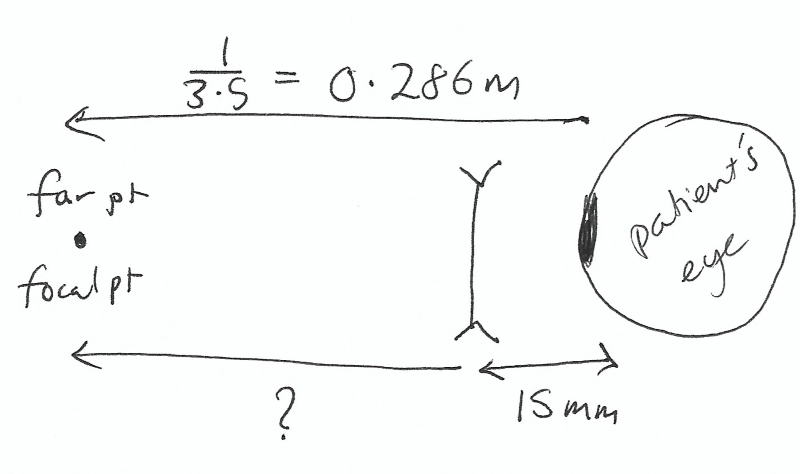 1
3.5 = 0.286m
far pt
focal pt
patient's
eye
?
15mm